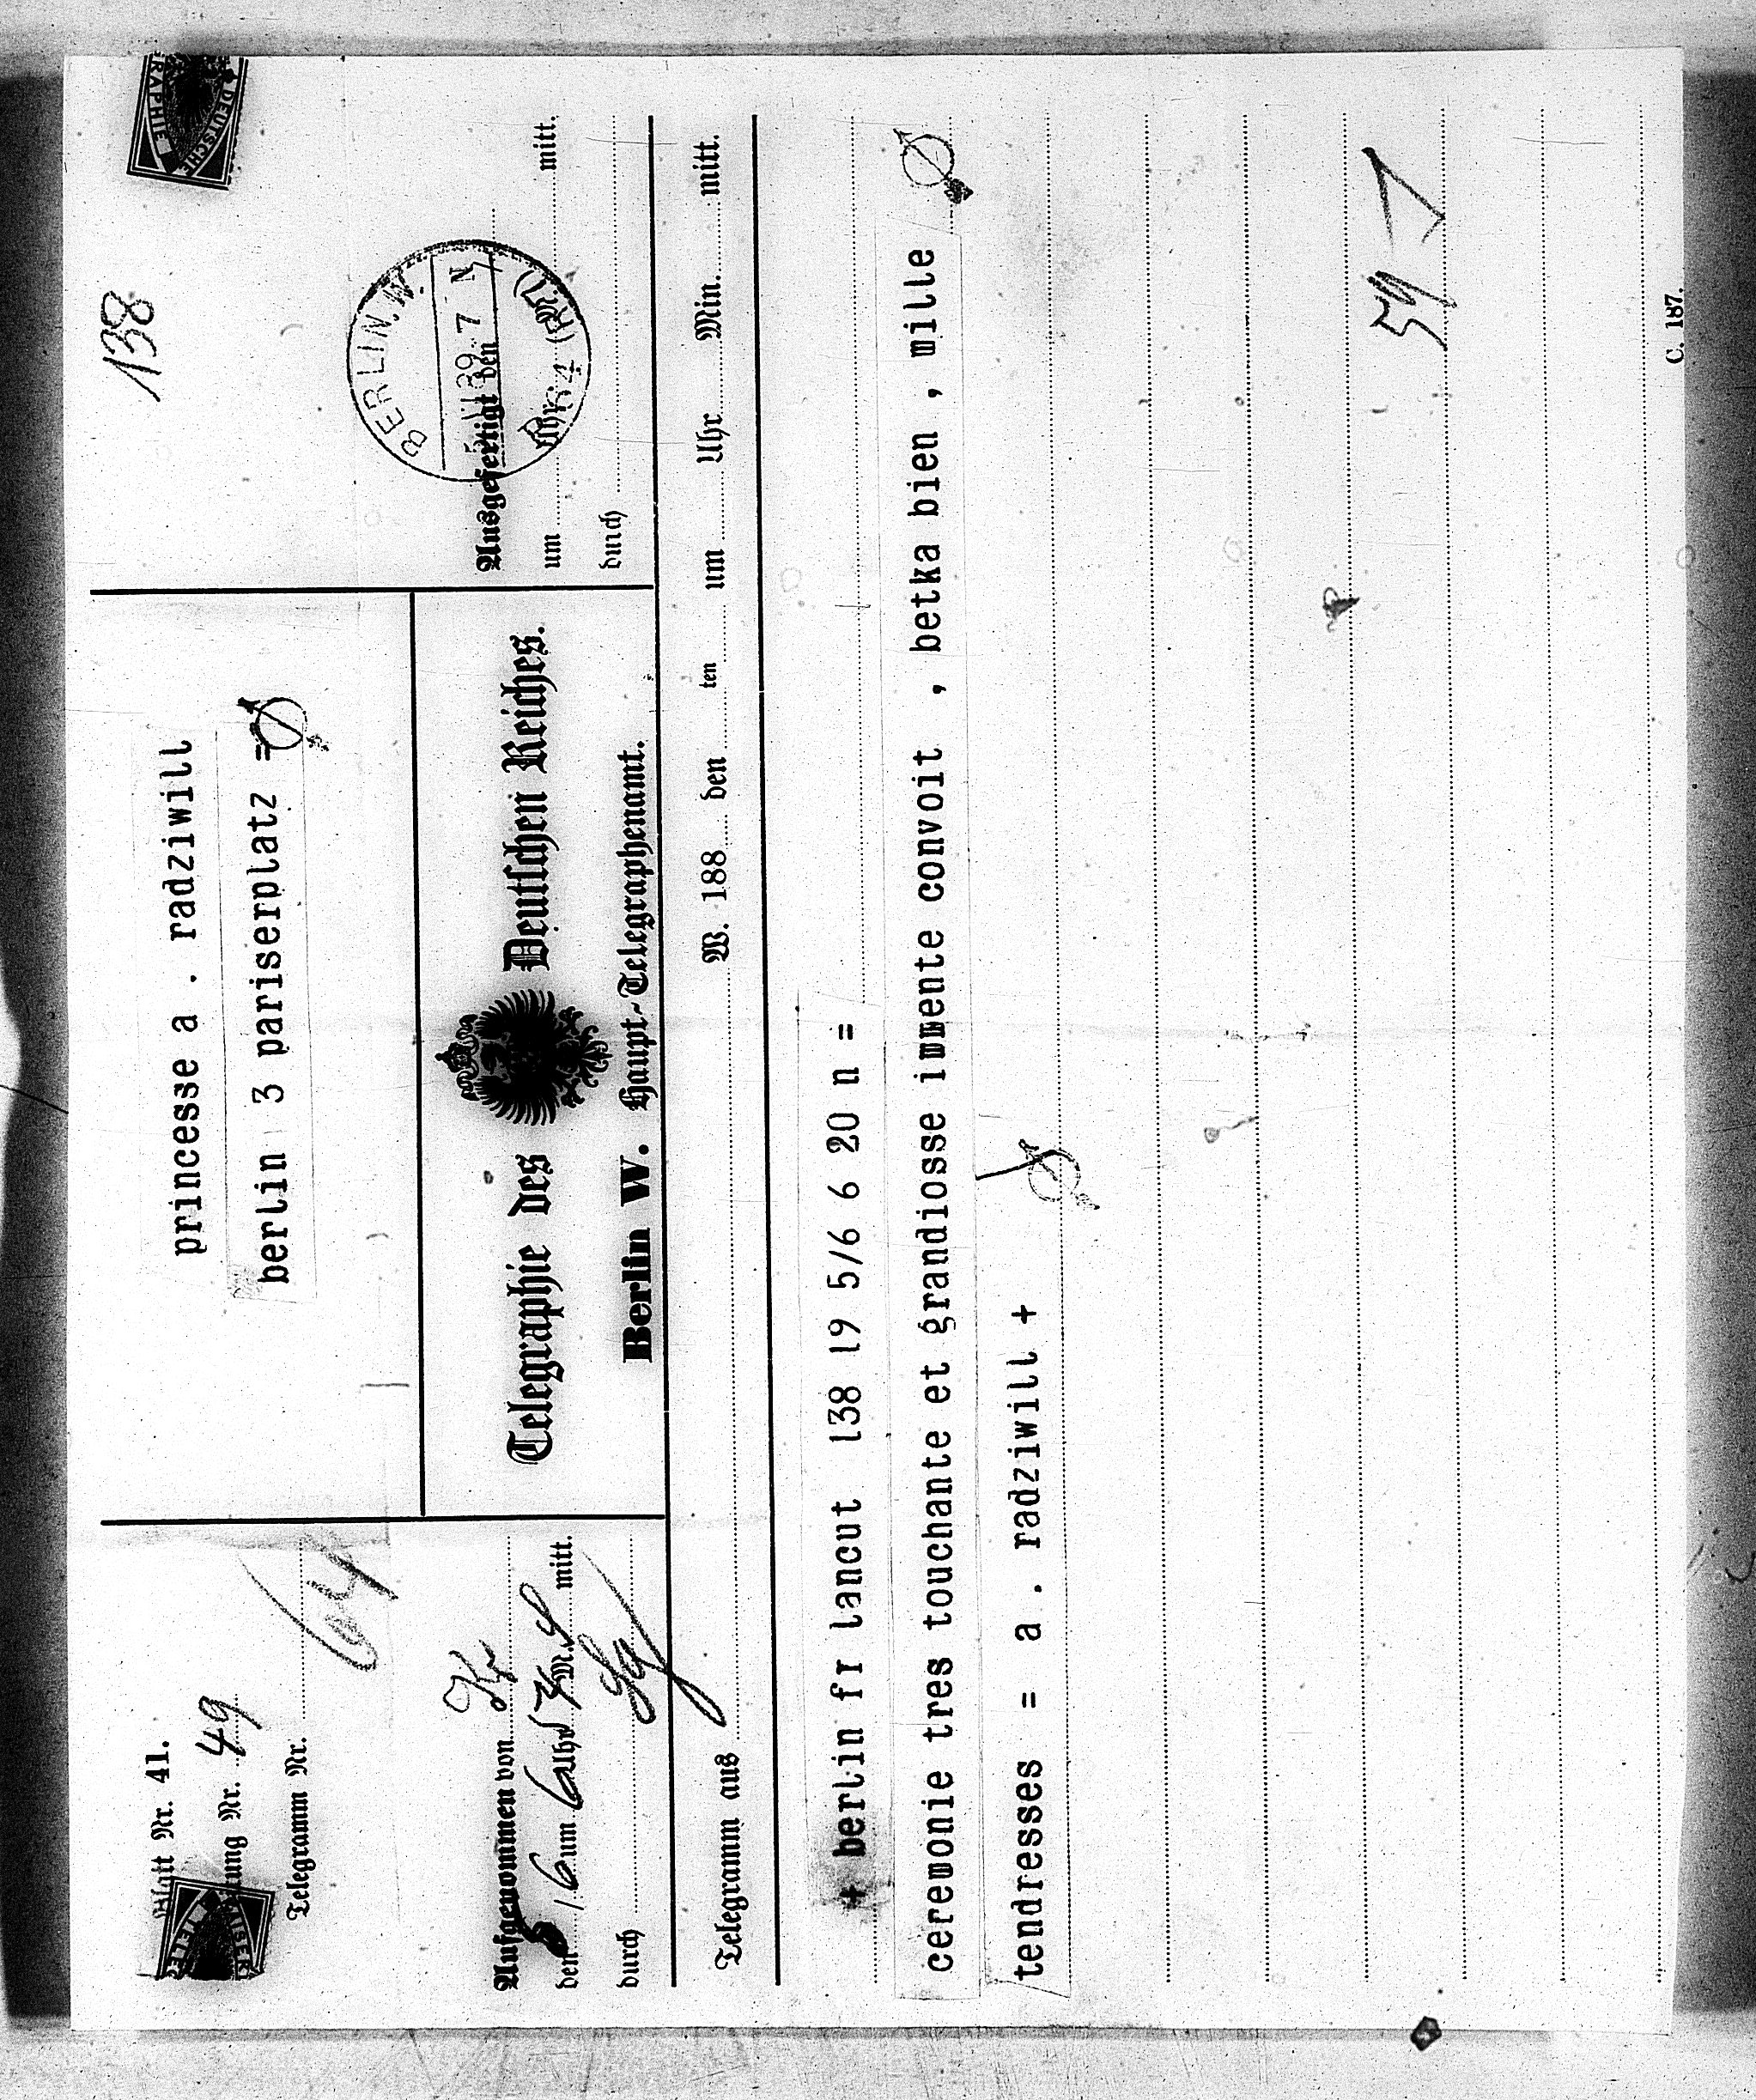 Blatt Nr. 41.
Leitung Nr. 49
Telegramm Nr.
64
princesse a . radziwill
berlin 3 pariserplatz =
138
DEUTSCHE
Aufgenommen von
den 5/6 um 6 Uhr M. mitt.
durch
Telegraphie des Deutschen Reiches.
Berlin W. Haupt-Telegraphenamt.
BERLIN. W.
7 N
64 (HT)
Ausgefertigt den
um Uhr mitt.
durch
Telegramm aus W. 188 den ten um Uhr Min. mitt.
+ berlin fr lancut 138 19 5/6 6 20 n =
ceremonie tres touchante et grandiosse immente convoit , betka bien , mille
tendresses = a . radziwill +
C. 187.